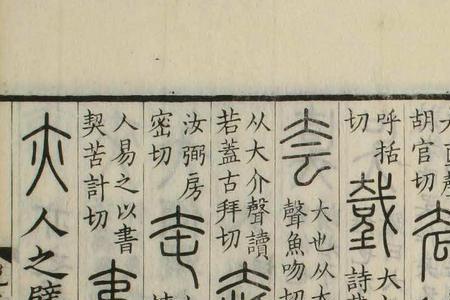 大亘聲
胡官切
呼括
切
大
詩
夽
大也从大
聲魚吻切
从大介聲讀
若蓋古拜切
汝弼房
密切
人易之以書
契苦計切
亦人之臂